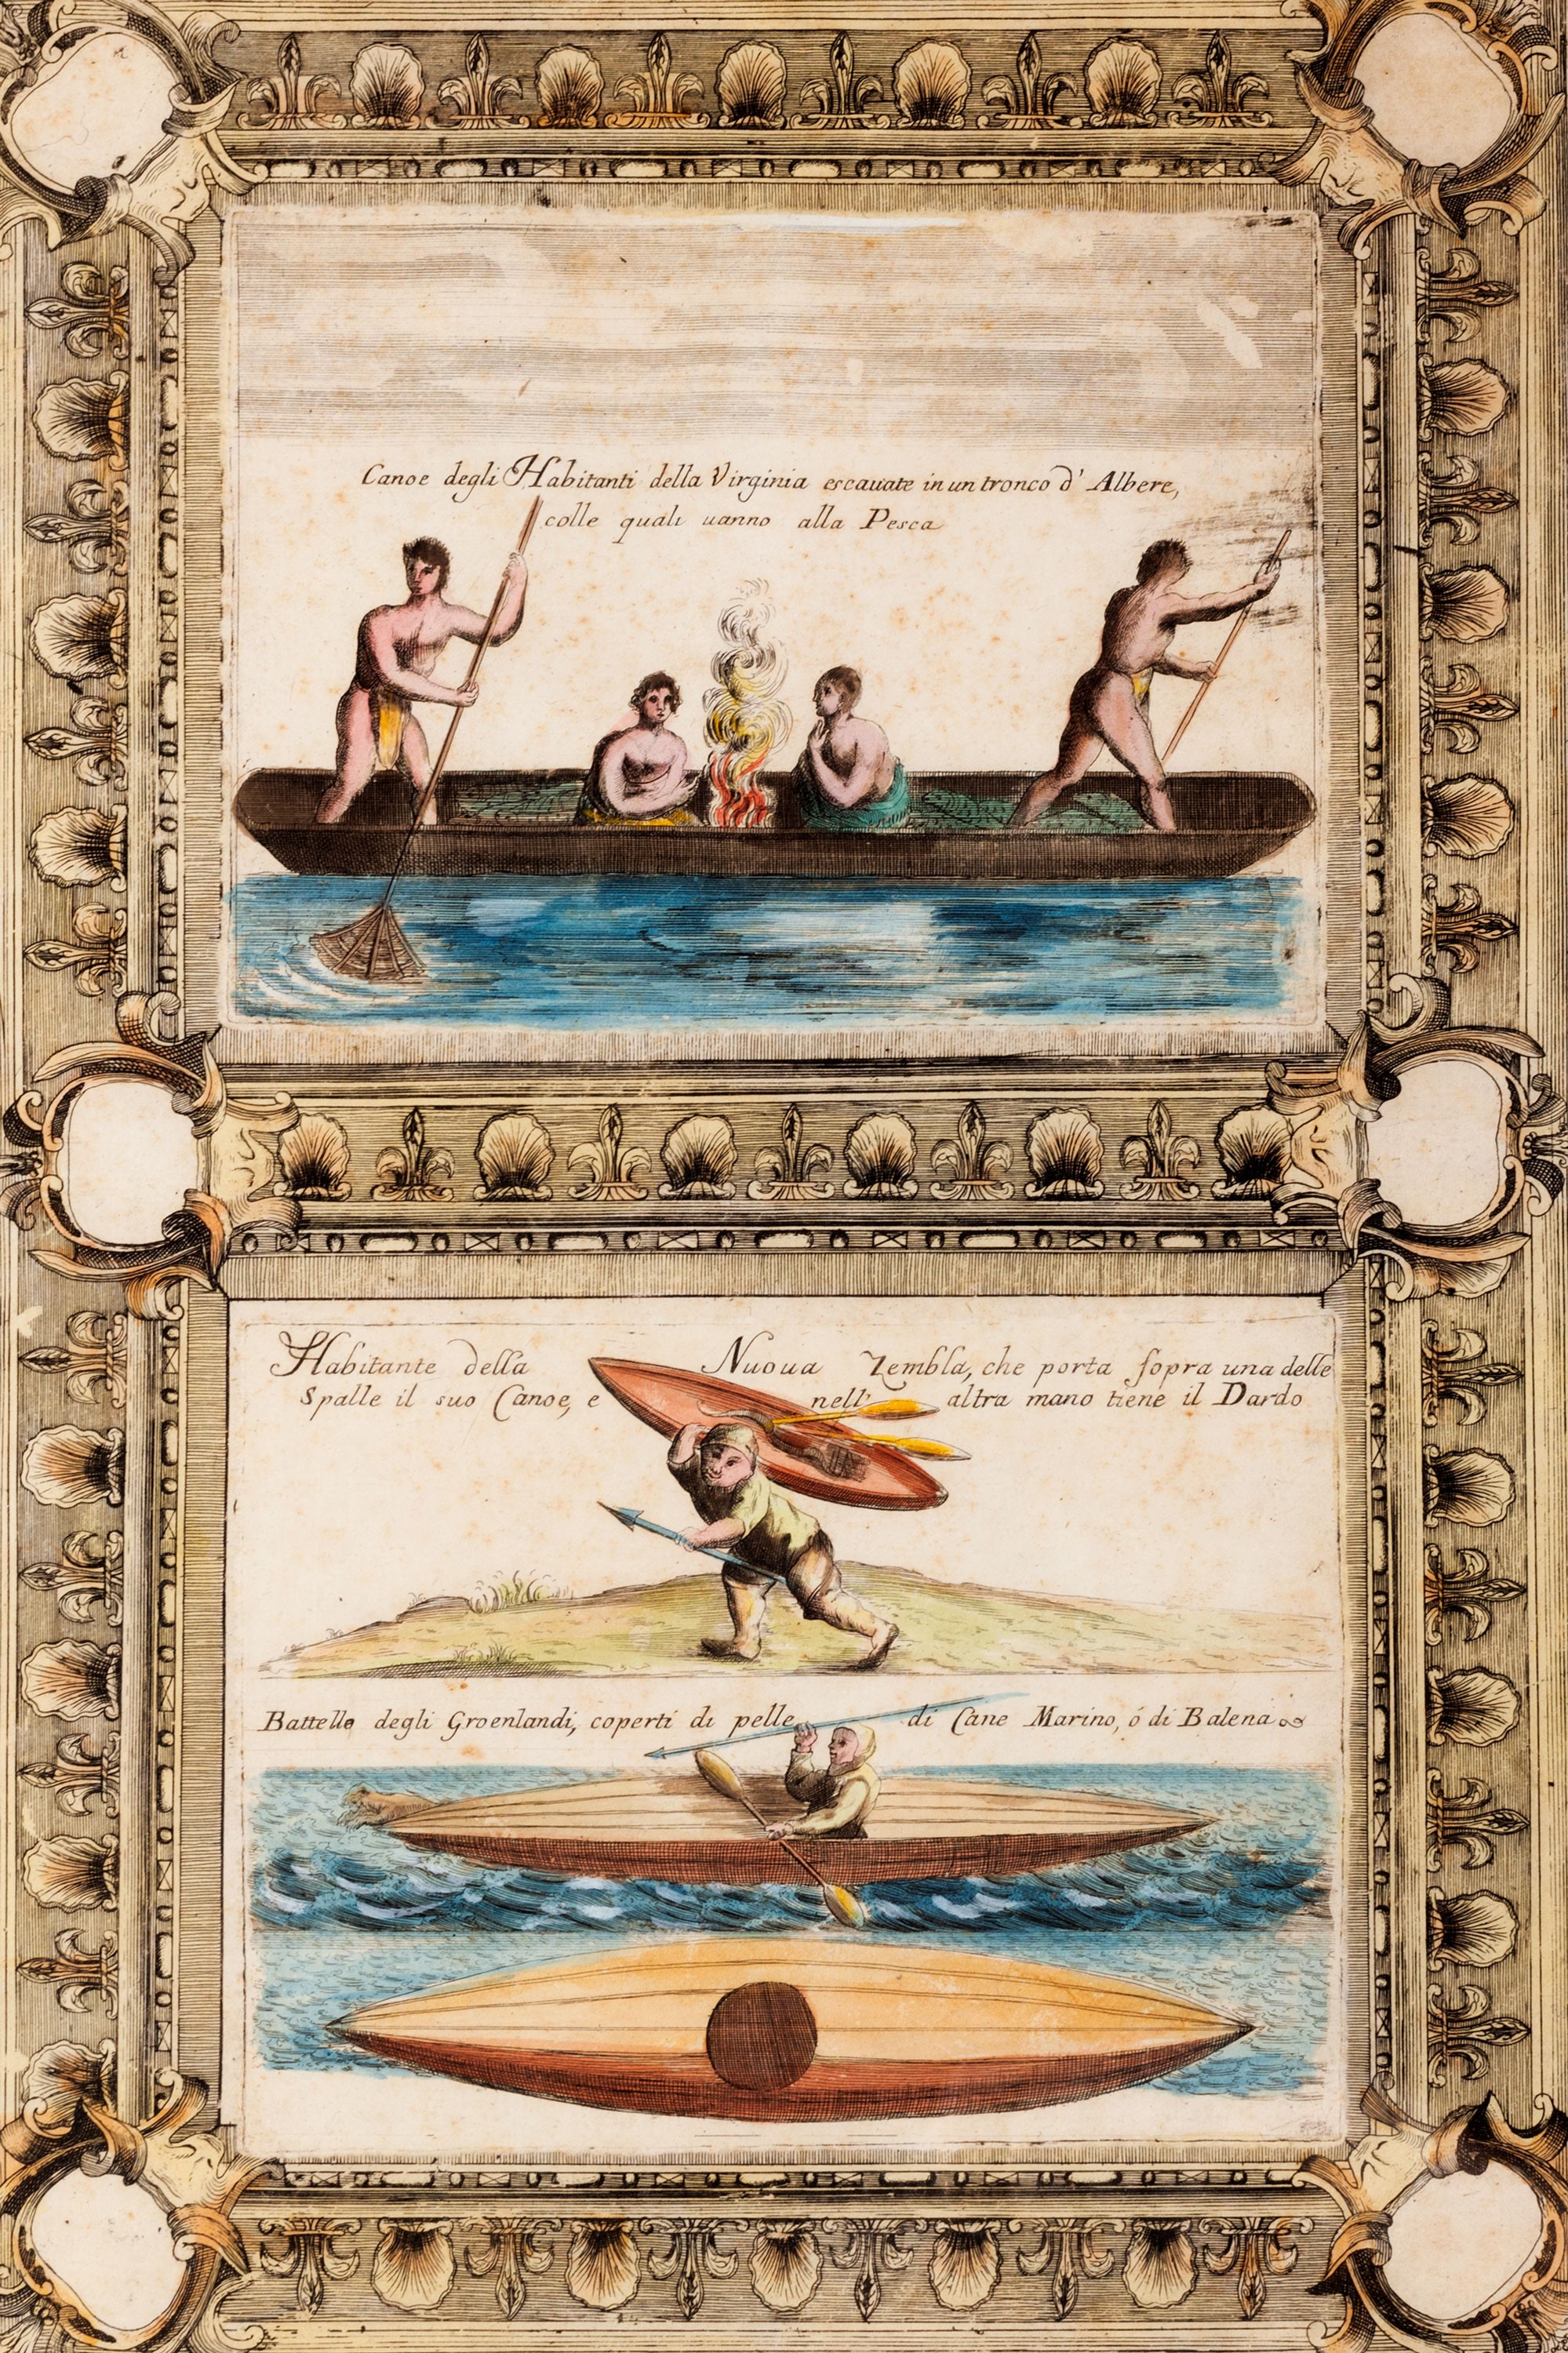 Canoe degli Habitanti della Virginia escauate in un tronco d' Albere,
colle quali uanno alla Pesca
Habitante della Nuoua Zembla, che porta sopra una delle
Spalle il suo Canoe, e nell' altra mano tiene il Dardo
Battello degli Groenlandi, coperti di pelle di Cane Marino, ó di Balena